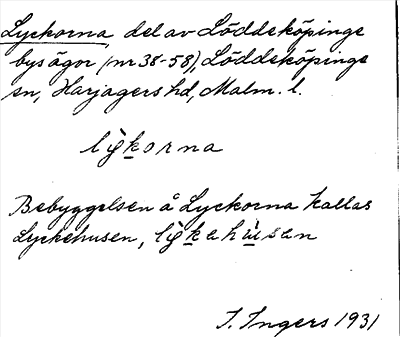 Lyckorna, del av Löddeköpinge
bys ägor (nr 38-58), Löddeköpinge
sn, Harjagers hd, Malm. l.
lỳkorna
Bebyggelsen å Lyckorna kallas
Lyckehusen, lỳkehùsen
I. Ingers 1931